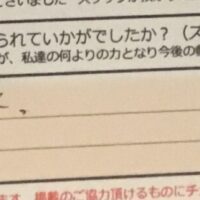 ざいました
られていかがでしたか？（ス
が、私達の何よりの力となり今後の
ます。掲載のご協力頂けるものにチ